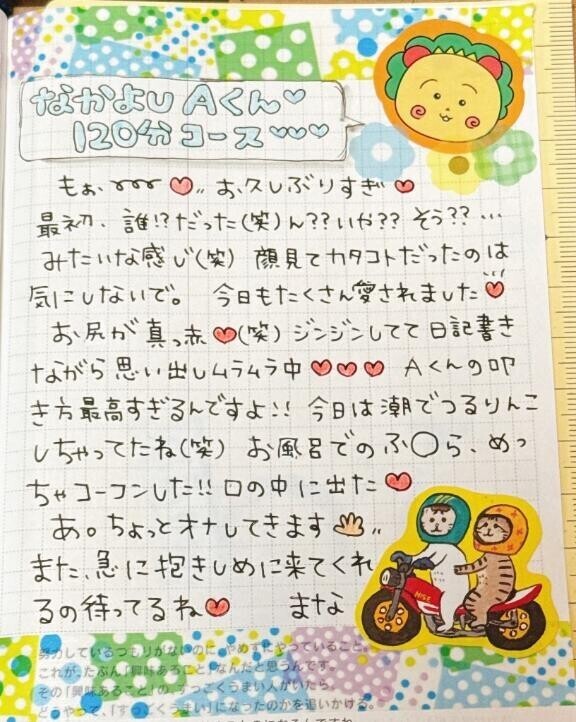 なかよし Aくん♡
120分 コース♡♡♡
もぉ、➰➰➰❤〃 お久しぶりすぎ❤
最初、誰!?だった(笑)ん??いや??そう??…
みたいな感じ(笑) 顔見てカタコトだったのは
気にしないで。 今日もたくさん愛されました❤
お尻が真っ赤❤(笑)ジンジンしてて日記書き
ながら思い出しムラムラ中❤❤❤ Aくんの叩
き方最高すぎるんですよ!! 今日は潮でつるりんこ
しちゃってたね(笑) お風呂でのふ〇ら、めっ
ちゃコーコンした!!口の中に出た❤
あ。ちょっとオナしてきます👋〃
また、急に抱きしめに来てくれ
るの待ってるね❤ まな
努力しているつもりがないのに、やめずにやっていること。
これが、たぶん「興味あること」なんだと思うんです。
その「興味あること」の、すっごくうまい人がいたら、
どうやって、「すっごくうまい」になったのかを追いかける。